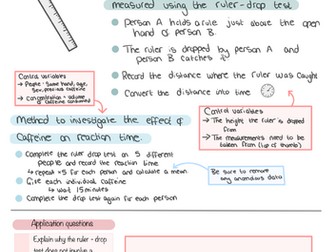 measured using the ruler-drop test
→ Person A holds a rule just above the open
hand of person B.
→ The ruler is dropped by person A and
person B catches it
→ Record the distance where the ruler was caught
→ Convert the distance into time
Control variables
→ People: Same hand, age,
Sex, previous caffeine
→ Concentration + volume
of caffeine consumed
Control variables
→ The height the ruler is dropped
from
→ The measurements need to be
taken from (top of thumb)
Method to investigate the effect of
Caffeine on reaction time.
Complete the ruler drop test on 5 different
people and record the reaction time
→ repeat ×5 for each person and calculate a mean
Give each individual caffeine
→ wait 15 minutes
Complete the drop test again for each person
Be sure to remove
any anomalous data
Application questions
Explain why the ruler - drop
test does not involve a